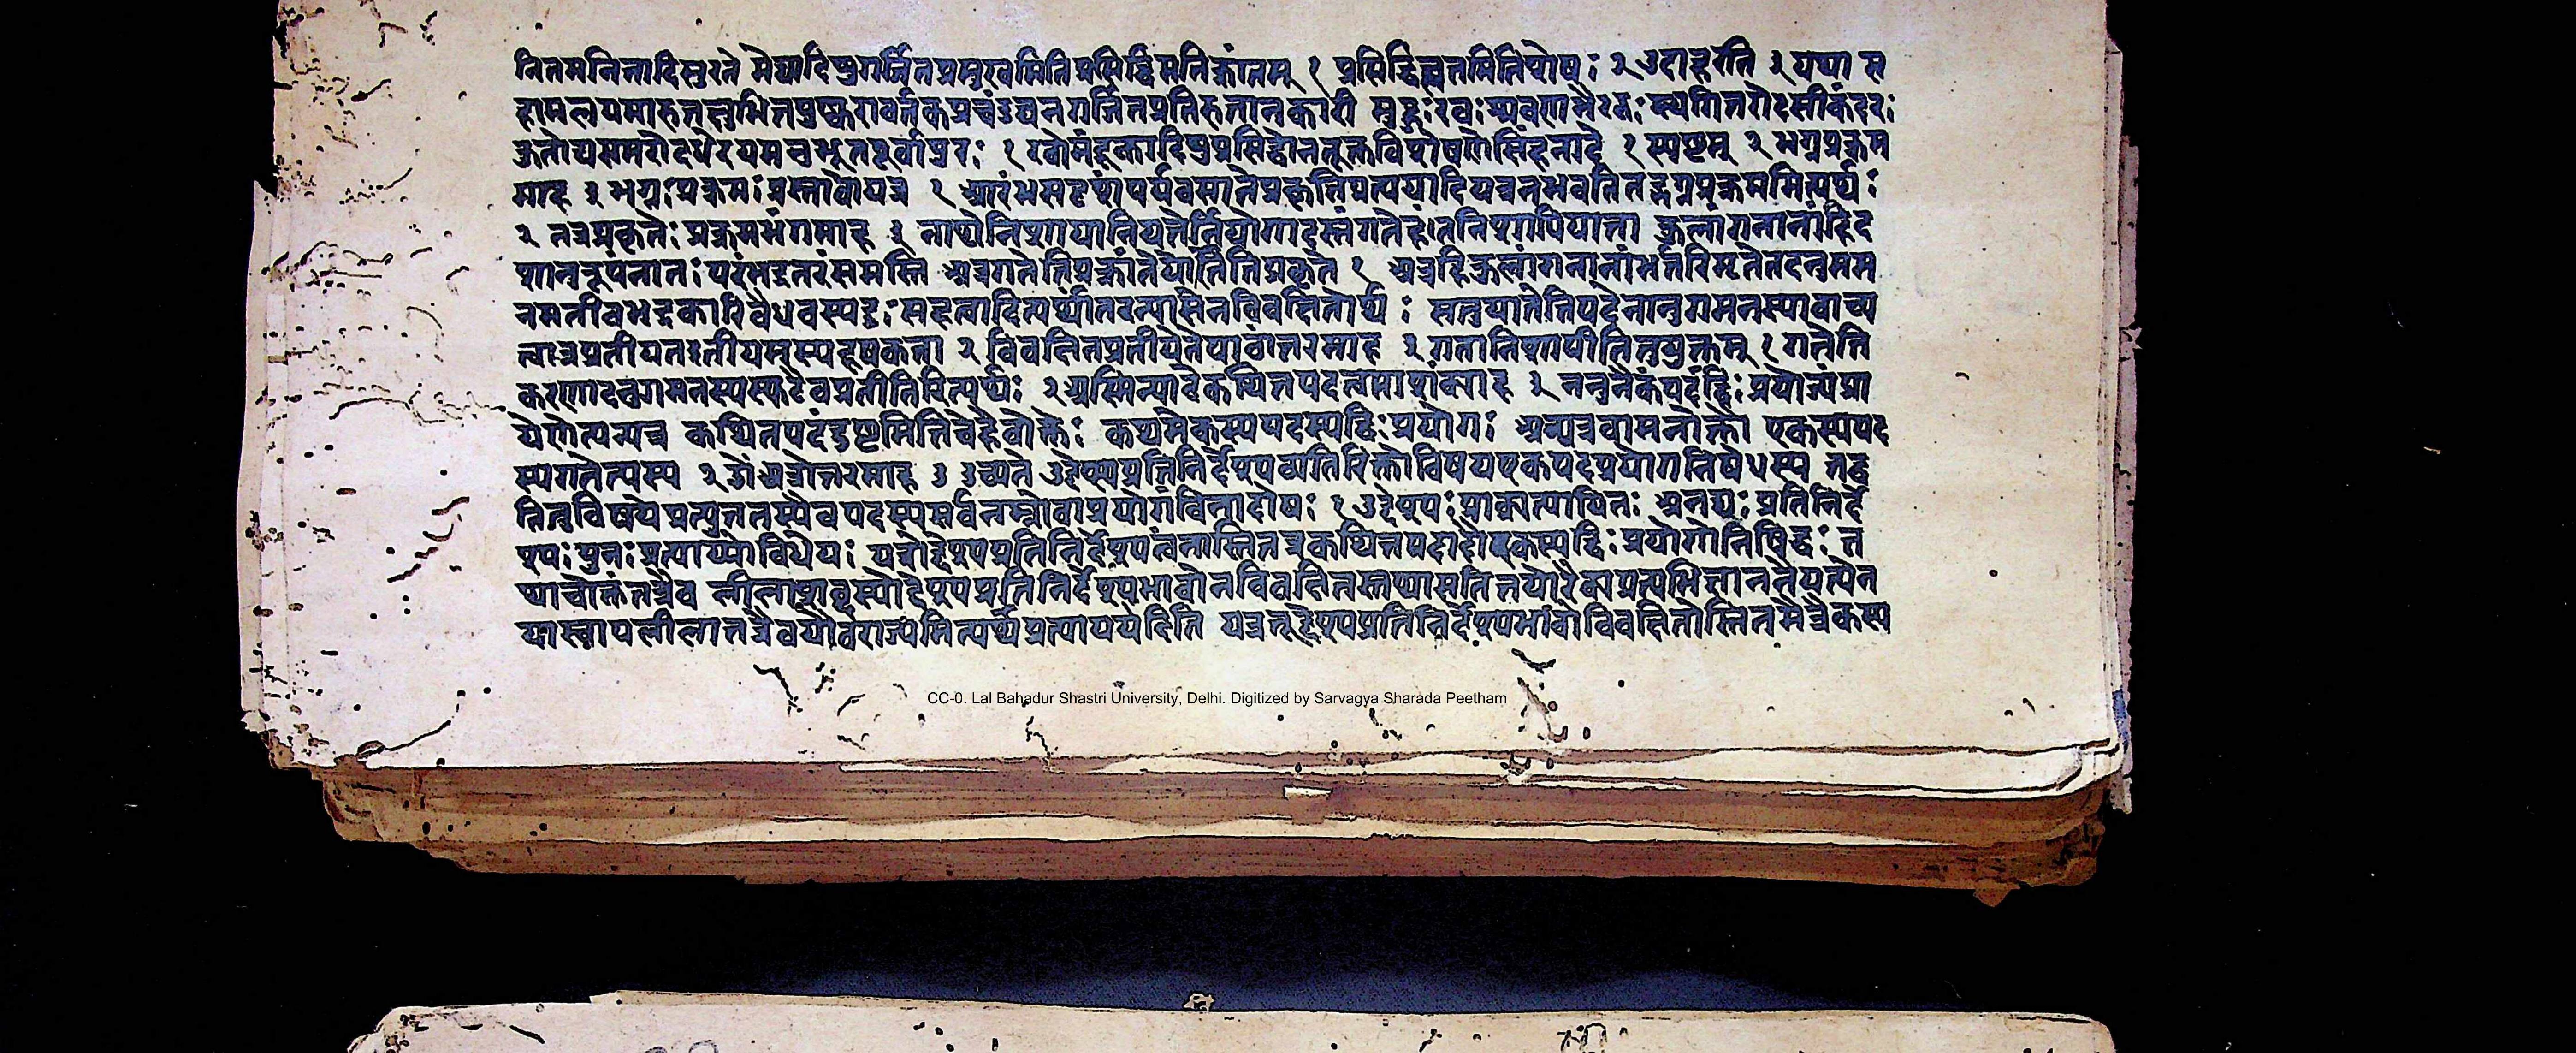 नितमनितादिसुरते मेघादिषुगर्जितप्रमुखमितिप्रसिद्धिमतिक्रांतम् १ प्रसिद्धिहतमितिशेषः २ उदाहरति ३ यथा म
हाप्रलयमारुतक्षुभितपुष्करावर्तकप्रचंडघनगर्जितप्रतिरुतानुकारी मुहुः रवः श्रवणभैरवः स्थगितरोदसीकंदरः
कुतोद्यसमरोदधेरयमभूतपूर्वःपुरः १ रवोमंडूकादिषुप्रसिद्धोनतूक्तविशेषणेसिंहनादे १ स्पष्टम् २ भग्नप्रक्रम
माह ३ भग्नःप्रक्रमःप्रस्तावोयत्र १ आरंभसदृशंपर्यवसानेप्रकृतिप्रत्ययादियत्रनभवतितद्भग्नप्रक्रममित्यर्थः
२ तत्रप्रकृतेःप्रक्रमभंगमाह ३ नाथेनिशायानियतेर्नियोगादस्तंगतेहंतनिशापियाता कुलांगनानांहिद
शानुरूपंनातःपरंभद्रतरंसमस्ति अत्रगतेतिप्रक्रांतेयातेतिप्रकृते १ अत्रहिकुलांगनानांभर्तरिमृतेतदनुगम
नमतीवभद्रकारिवैधवस्यदुःसहत्वादित्यर्थांतरन्यासेनविवक्षितोर्थः सतुयातेतिपदेनानुगमनस्यावाच्य
त्वान्नप्रतीयतइतीयमस्यदूषकता २ विवक्षितप्रतीयतेपाठांतरमाह ३ गतानिशापीतितुयुक्तम् १ गतेति
करणादनुगमनस्यस्फुटैवप्रतीतिरित्यर्थः २ अस्मिन्पाठेकथितपदत्वमाशंक्याह ३ ननुनैकंपदंद्विःप्रयोज्यंप्रा
येणेत्यन्यत्र कथितपदंदुष्टमितिचेहैवोक्तेः कथमेकस्यपदस्यद्विःप्रयोगः अन्यत्रवामनोक्तौ एकस्यपद
स्यगतेत्यस्य २ अत्रोत्तरमाह ३ उच्यते उद्देश्यप्रतिनिर्देश्यव्यतिरिक्तोविषयएकपदप्रयोगनिषेधस्य तद्व
तितुविषयेप्रत्युततस्यैवपदस्यसर्वनाम्नोवाप्रयोगंविनादोषः १ उद्देश्यःप्राक्प्रत्यायितः अनूद्यः प्रतिनिर्दे
श्यः पुनःप्रत्याय्योविधेयः यत्रोद्देश्यप्रतिनिर्देश्यत्वंनास्तितत्रकथितपदादौएकस्यद्विःप्रयोगोनिषिद्धः त
थाचोक्तंतत्रैव लीलाशब्दस्योद्देश्यप्रतिनिर्देश्यभावोनविवक्षितस्तथासतितयोरेकाप्रत्यभिज्ञानतेयत्येन
यास्वापलीलातत्रैवयौवराज्यंमित्यर्थप्रत्याययेदिति यत्रतूद्देश्यप्रतिनिर्देश्यभावोविवक्षितोस्तितत्रैकस्य
CC-0. Lal Bahadur Shastri University, Delhi. Digitized by Sarvagya Sharada Peetham